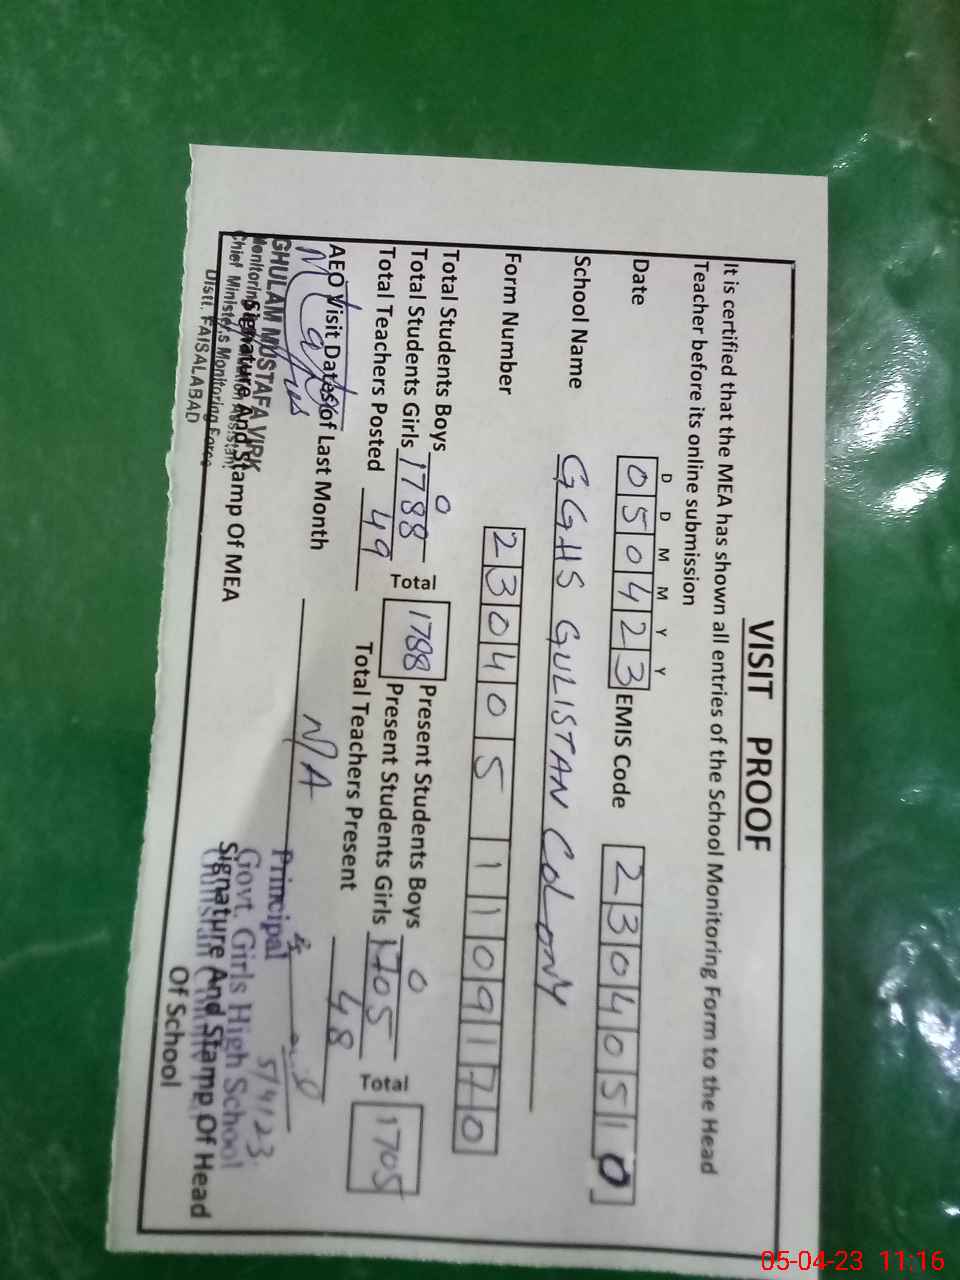 VISIT PROOF
It is certified that the MEA has shown all entries of the School Monitoring Form to the Head
Teacher before its online submission
D D M M Y Y
Date 050423 EMIS Code 23040510
School Name GGHS GULISTAN COLONY
Form Number 230405 1109170
Total Students Boys 0 Present Students Boys 0
Total Students Girls 1788 Total 1788 Present Students Girls 1705 Total 1705
Total Teachers Posted 49 Total Teachers Present 48
AEO Visit Dates of Last Month N/A
GHULAM MUSTAFA VIRK
Chief Minister's Monitoring Force
Distt. FAISALABAD
Signature And Stamp Of MEA
Principal
5/4/23
Govt. Girls High School
Signature And Stamp Of Head
Of School
05-04-23 11:16